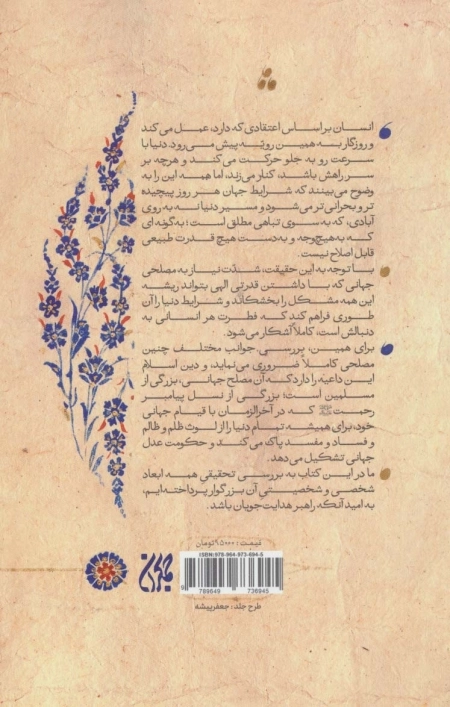 انسان بر اساس اعتقادی که دارد، عمل می‌کند
و روزگار به همین رویّه پیش می‌رود. دنیا با
سرعت رو به جلو حرکت می‌کند و هرچه بر
سر راهش باشد، کنار می‌زند، اما همه این را به
وضوح می‌بینند که شرایط جهان هر روز پیچیده
تر و بحرانی‌تر می‌شود و مسیر دنیا نه به روی
آبادی، که به سوی تباهی مطلق است؛ به گونه‌ای
که به هیچ وجه و به دست هیچ قدرت طبیعی
قابل اصلاح نیست.
با توجه به این حقیقت، شدّت نیاز به مصلحی
جهانی که با داشتن قدرتی الهی بتواند ریشه
این همه مشکل را بخشکاند و شرایط دنیا را آن
طوری فراهم کند که فطرت هر انسانی به
دنبالش است، کاملاً آشکار می‌شود.
برای همین، بررسی جوانب مختلف چنین
مصلحی کاملاً ضروری می‌نماید، و دین اسلام
این داعیه را دارد که آن مصلح جهانی، بزرگی از
مسلمین است؛ بزرگی از نسل پیامبر
رحمت ﷺ که در آخرالزمان با قیام جهانی
خود، برای همیشه تمام دنیا را از لوث ظلم و ظالم
و فساد و مفسد پاک می‌کند و حکومت عدل
جهانی تشکیل می‌دهد.
ما در این کتاب به بررسی تحقیقی همه ابعاد
شخصی و شخصیتی آن بزرگوار پرداخته‌ایم،
به امید آنکه راهبر هدایت‌جویان باشد.
قیمت: ۹۵۰۰۰ تومان
ISBN: 978-964-973-694-5
9 789649 736945
طرح جلد: جعفرپیشه